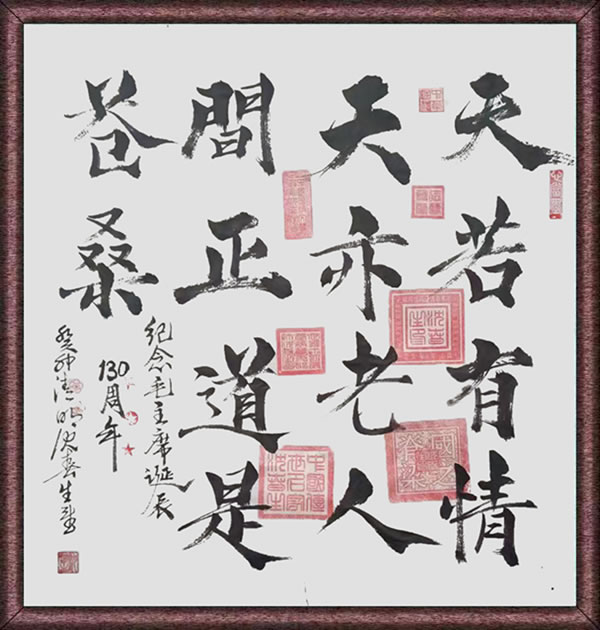 天若有情
天亦老人
間正道是
苍桑
纪念毛主席诞辰
130周年
癸卯清明